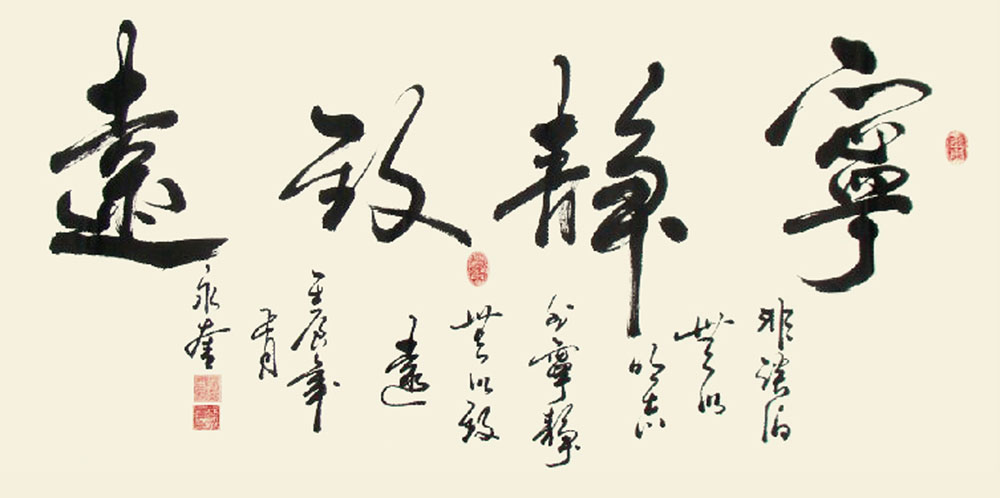 寧靜致遠
非淡泊
無以
明志
非寧靜
無以致
遠
壬辰年
月
永奎